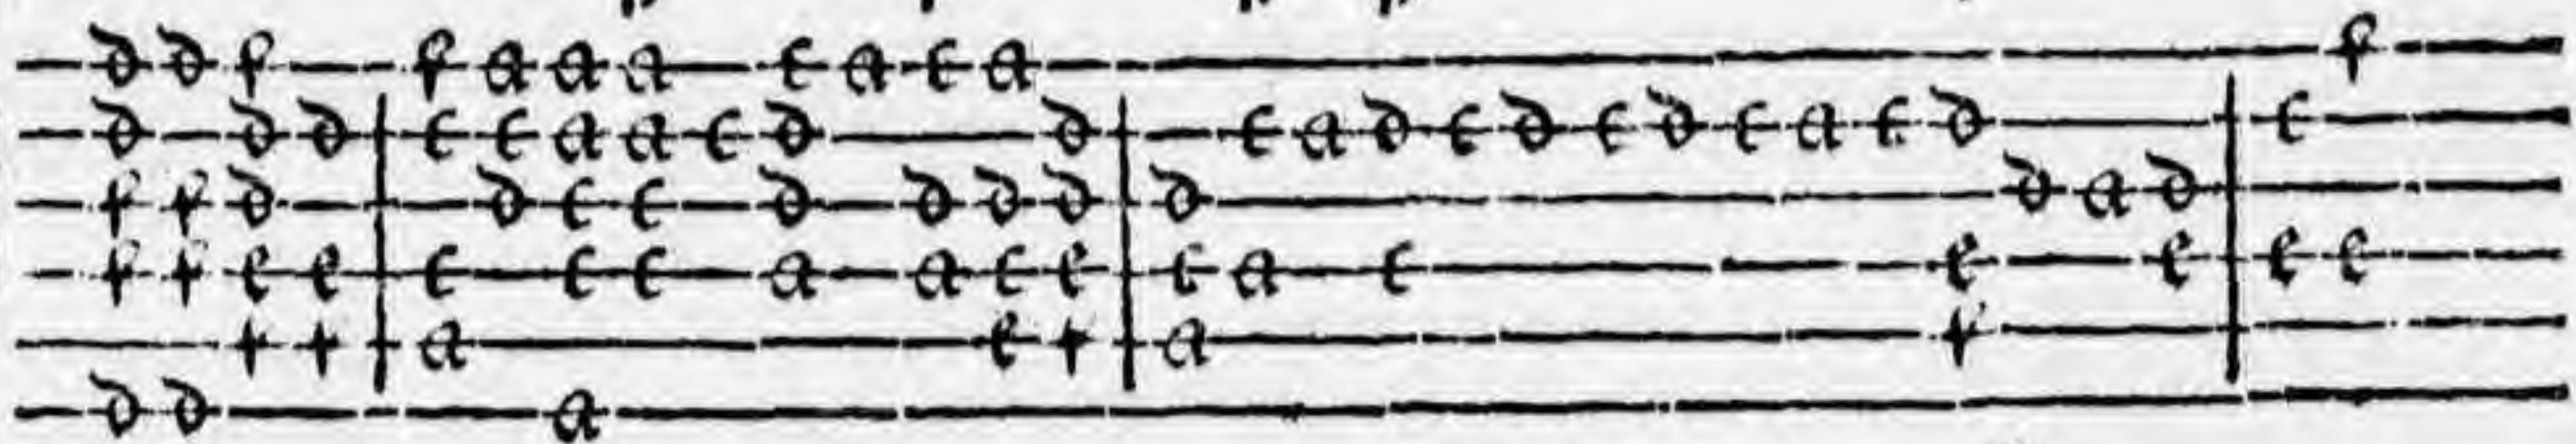 d d f f a a a c a c a f
d d d c c a a c d d c a d c d c d c a c d c
f f d d c c d d d d d d a d
f f e e c c c a a c e c a c e e e e
f f a e f a f
d d a